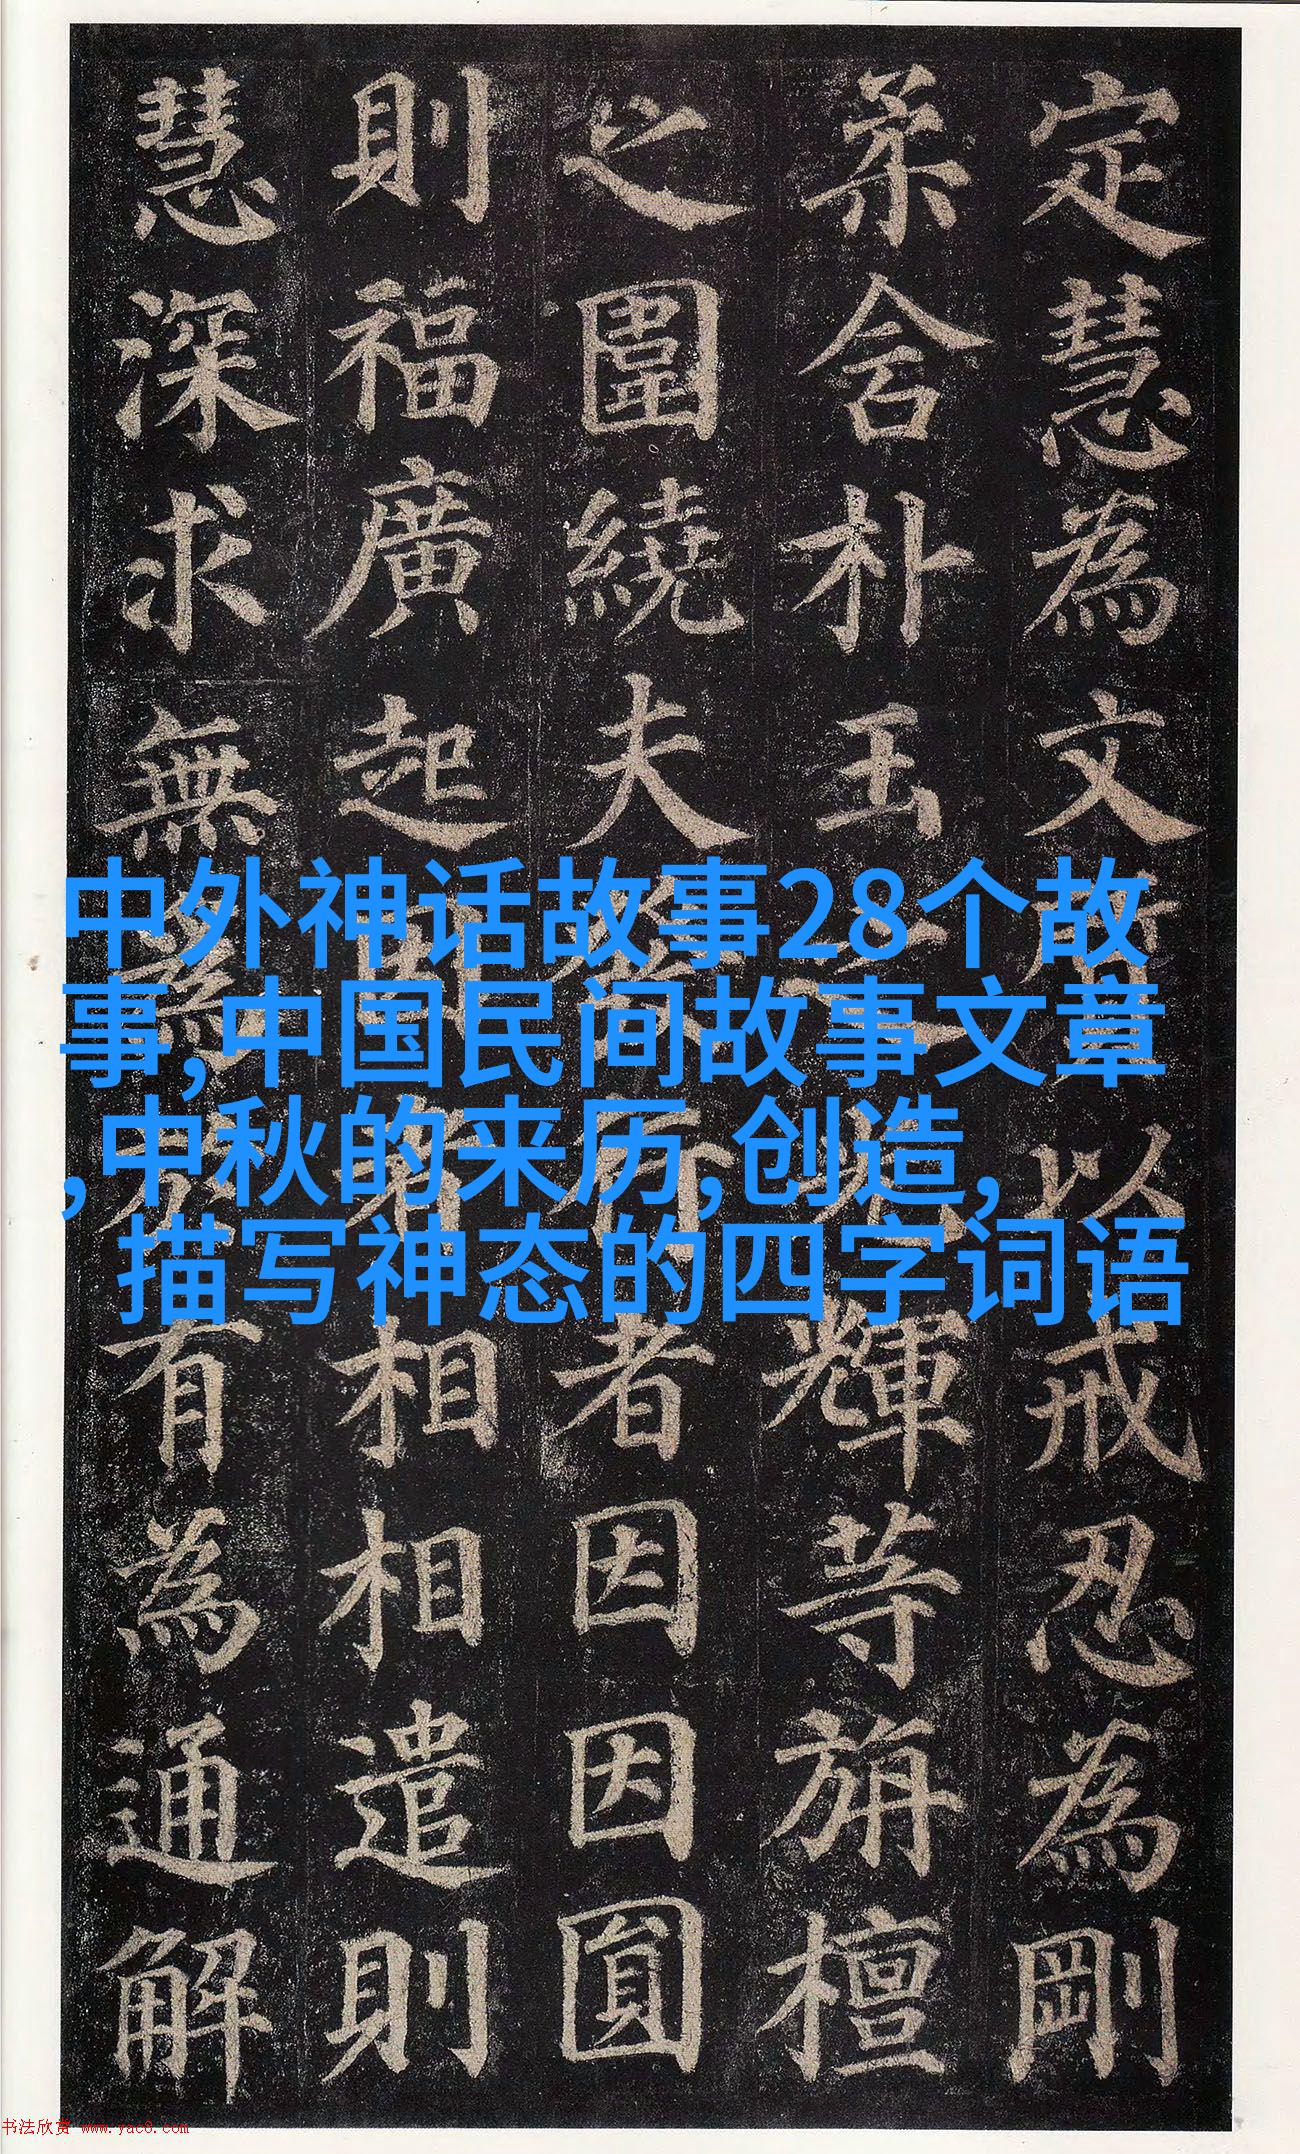 定慧為文以戒忍為剛
柔含朴玉輝等旃檀
之圍繞夫者因因圓
則福廣起相相遣則
慧深求無有為通解
中外神话故事28个故
事,中国民间故事文章
,中秋的来历,创造,
描写神态的四字词语
书法欣赏 www.yac8.com